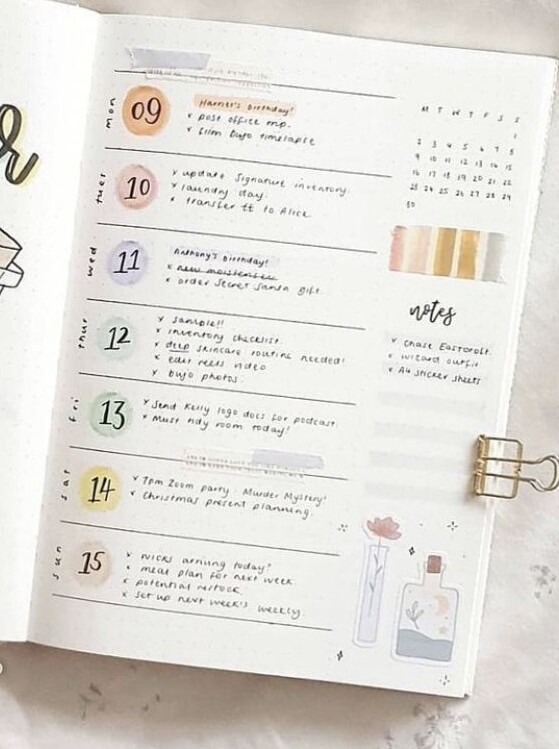 mon
09
Harriet's Birthday!
x post office trip.
x film bujo timelapse
tues
10
x update signature inventory.
x laundry day.
x transfer ££ to Alice.
wed
11
Anthony's Birthday!
x new moisteriser
x order secret santa gift.
thur
12
x sample!!
x inventory checklist.
x deep skincare routine needed!
x edit reels video
x bujo photos.
fri
13
x send Kelly logo docs for podcast.
x Must tidy room today!
sat
14
x 7pm Zoom party. Murder Mystery!
x Christmas present planning.
sun
15
x nicks arriving today!
x meal plan for next week
x potential restock.
x set up next week's weekly.
M T W T F S S
1
2 3 4 5 6 7 8
9 10 11 12 13 14 15
16 17 18 19 20 21 22
23 24 25 26 27 28 29
30
notes
x chase Eastcroft.
x wizard outfit
x A4 sticker sheets